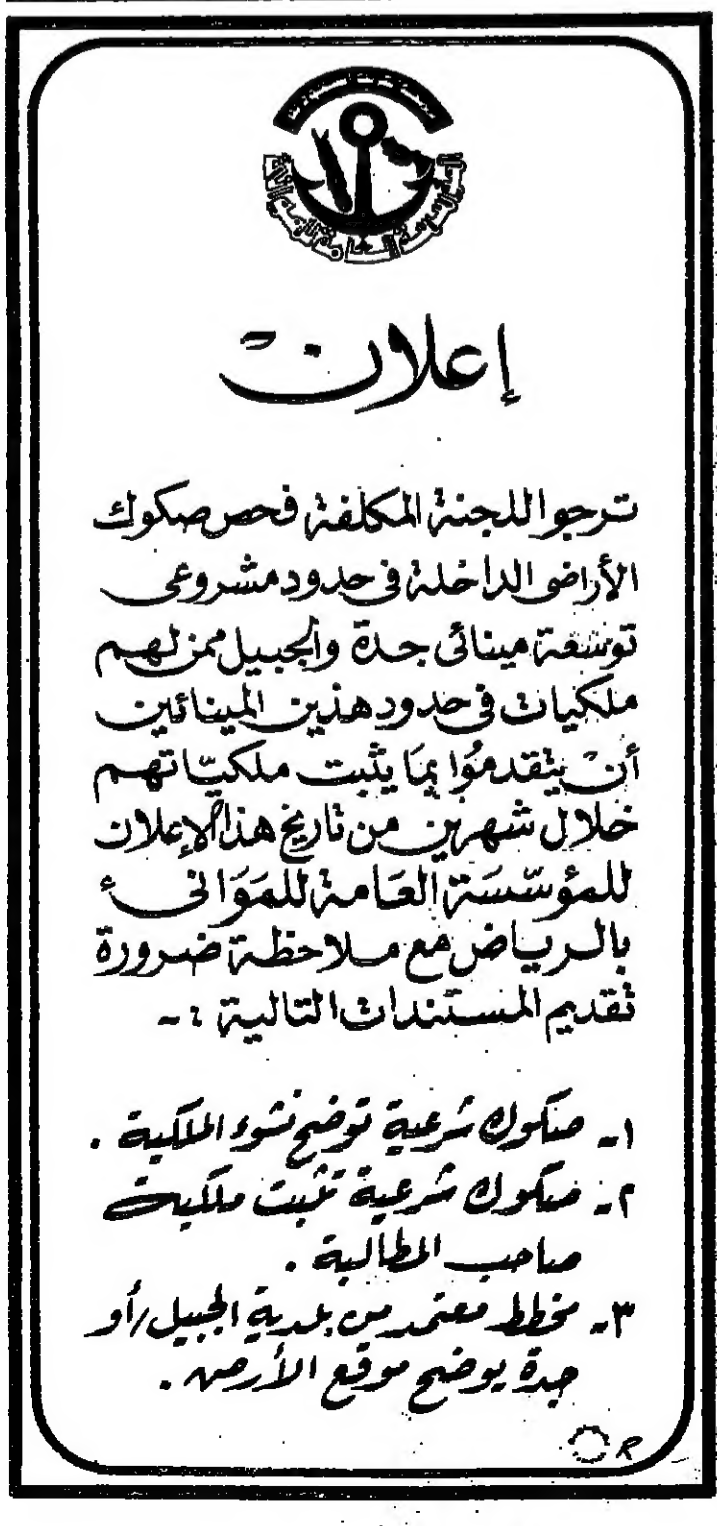 إعلان
ترجو اللجنة المكلفة فحص صكوك
الأراضى الداخلة فى حدود مشروعى
توسعة مينائى جدة والجبيل ممن لهم
ملكيات فى حدود هذين المينائين
أن يتقدموا بما يثبت ملكياتهم
خلال شهرين من تاريخ هذا الإعلان
للمؤسسة العامة للموانىء
بالرياض مع ملاحظة ضرورة
تقديم المستندات التالية :-
١- صكوك شرعية توضح نشوء الملكية .
٢- صكوك شرعية تثبت ملكية
صاحب المطالبة .
٣- مخطط معتمد من بلدية الجبيل/أو
جدة يوضح موقع الأرض .
R